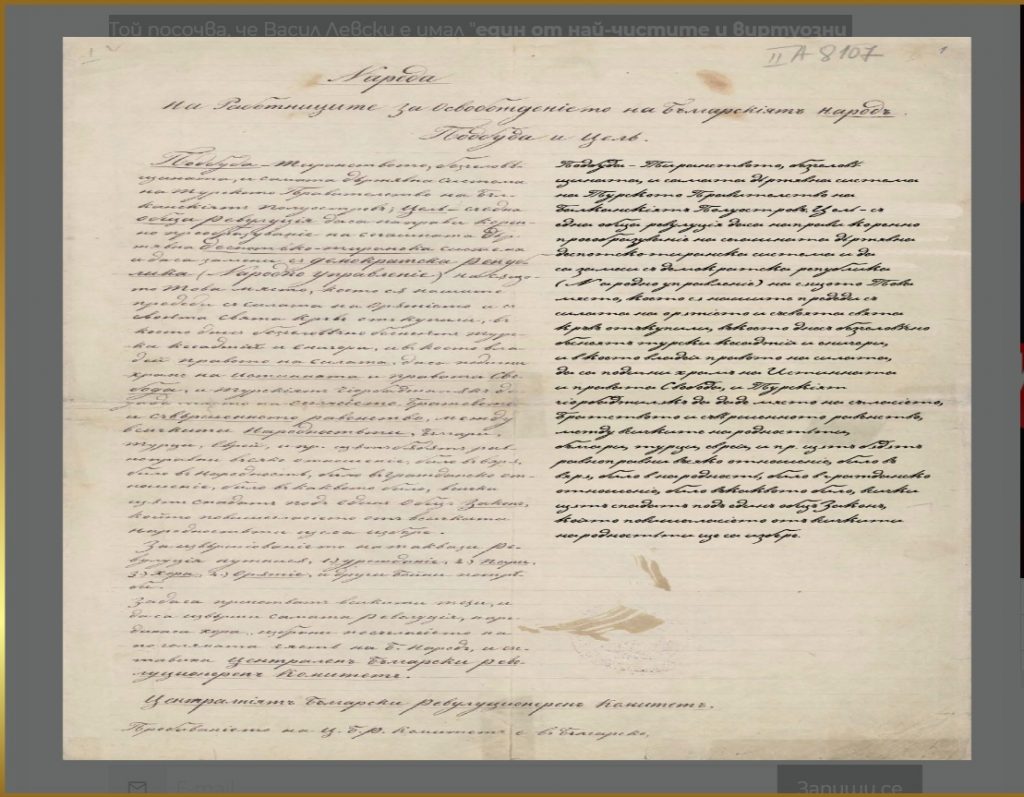 Той посочва, че Васил Левски е имал "един от най-чистите и виртуозни
II A 8107
1
Нареда
на Работниците за Освобождението на Българскиятъ народъ.
Подбуда и Цель.
Подбуда – Тиранството, безчеловѣ-
щината, и самата държавна система
на Турското Правителство на Бал-
канскиятъ Полуостровъ; Цель – съ една
обща революция да са направи корен-
но преобразувание на сегашната дър-
жавна деспотско-тиранска система
и да са замени съ демократска репуб-
лика (Народно управление) на също-
то това място, което са нашите
прадеди съ силата на оръжието и съ
своята света кръвь откупили, въ
което днес безчеловечно беснеят тур-
ски
и в което вла-
дей правото на силата, да са подигни
храмъ на истината и правата сво-
бода, и Турскиятъ чорбаджилъкъ да
даде място на съгласието, братството
и съвършенното равенство, между
всичките Народности. Българи,
Турци, Евреи и пр. щатъ бъдатъ рав-
ноправни въ всяко отношение, било въ вяра,
било въ народностъ, било въ гражданско от-
ношение, било въ каквото било, всички
щатъ спадатъ подъ един общъ Законъ,
който по вишегласието отъ всичките
народности ще са избере.
За извършванието на таквази ре-
волуция нуждни са,
3) Хора, 4) Оръжие, и други бойни потре-
би.
Задача приематъ всичките тези, и
да са извърши самата Революция, наре-
дили са хора, избрани
по-голямата част на Б. Народъ, и съ-
ставили Централенъ Български Рево-
луционеренъ Комитетъ.
Подбуда – Тиранството, безчеловѣ-
щината, и самата държавна система
на Турското Правителство на
Балканскиятъ Полуостровъ. Цель – съ
една обща революция да са направи коренно
преобразувание на сегашната държавна
деспотско тиранска система и да
са замени съ демократска република
(Народно управление) на същото това
място, което са нашите прадеди съ
силата на оръжието и съ своята света
кръвь откупили, в което днес безчеловечно
беснеят турски
и в което владей правото на силата,
да са подигни храмъ на Истината
и правата Свобода, и Турският
чорбаджилъкъ да даде място на съгласието,
братството и съвършенното равенство,
между всичките народности,
българи, турци, евреи, и пр. щатъ бъдатъ
равноправни въ всяко отношение, било въ
вяра, било в народностъ, било в гражданско
отношение, било въ каквото било, всички
щатъ спадатъ подъ един общъ Законъ,
който по вишегласието отъ всичките
народности ще са избере.
Централниятъ Български Революционеренъ Комитетъ.
Пребиванието на Ц. Б. Р. Комитетъ е въ Българско.
E-mail
Запиши се